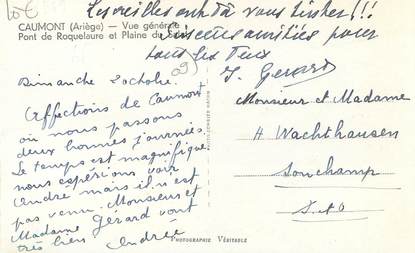 Les oreilles ont dû vous tinter!!!
Sincères amitiés pour
tous les deux
J. Gérard
CAUMONT (Ariège) — Vue générale
Pont de Roquelaure et Plaine du
Dimanche 8 octobre.
Affections de Caumont
où nous passons
deux bonnes journées.
Le temps est magnifique
nous espérions voir
André mais il n'est
pas venu. Monsieur et
Madame Gérard vont
très bien Andrée
Monsieur et Madame
H Wachthausen
Sonchamp
S. et O
PHOTOGRAPHIE VÉRITABLE